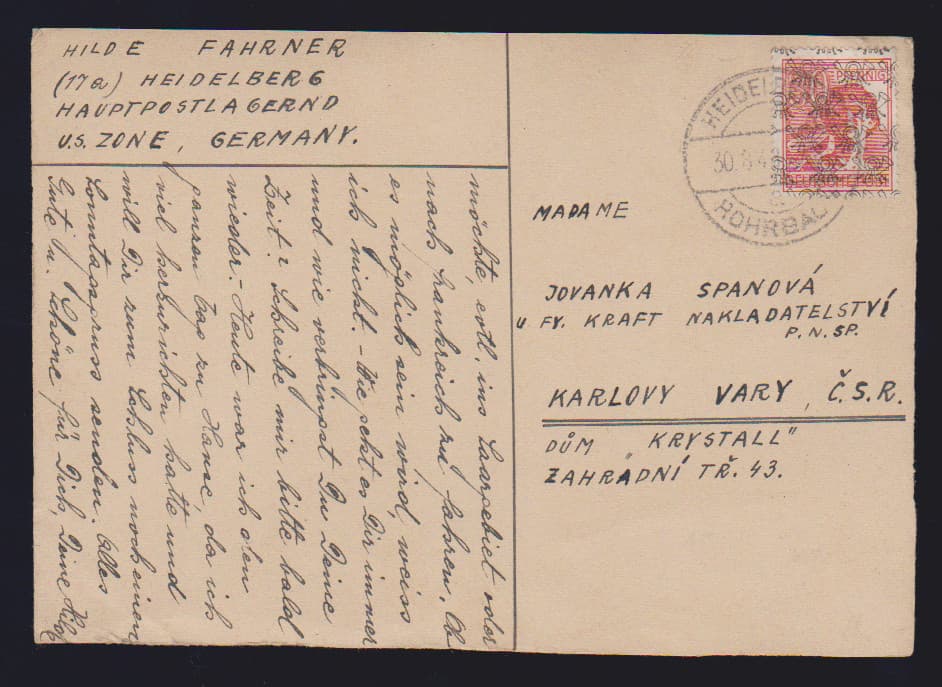 HILDE FAHRNER
(17a) HEIDELBERG
HAUPTPOSTLAGERND
U.S. ZONE, GERMANY.
möchte, evtl. ins Saargebiet oder
nach Frankreich zu fahren. Ob
es möglich sein wird, weiss
ich nicht. - Wie geht es Dir immer
und wie verbringst Du Deine
Zeit? Schreibe mir bitte bald
wieder. - Heute war ich den
ganzen Tag zu Hause, da ich
viel herzurichten hatte und
will Dir zum Schluss noch einen
Sonntagsgruss senden. Alles
Gute u. Schöne für Dich, Deine Hilde
HEIDELB
30.8.4
ROHRBA
PFENNIG
DEUTSCHE POST
MADAME
JOVANKA SPANOVÁ
U FY. KRAFT NAKLADATELSTVÍ
P. N. SP.
KARLOVY VARY, Č.S.R.
DŮM „KRYSTALL"
ZAHRADNÍ TŘ. 43.